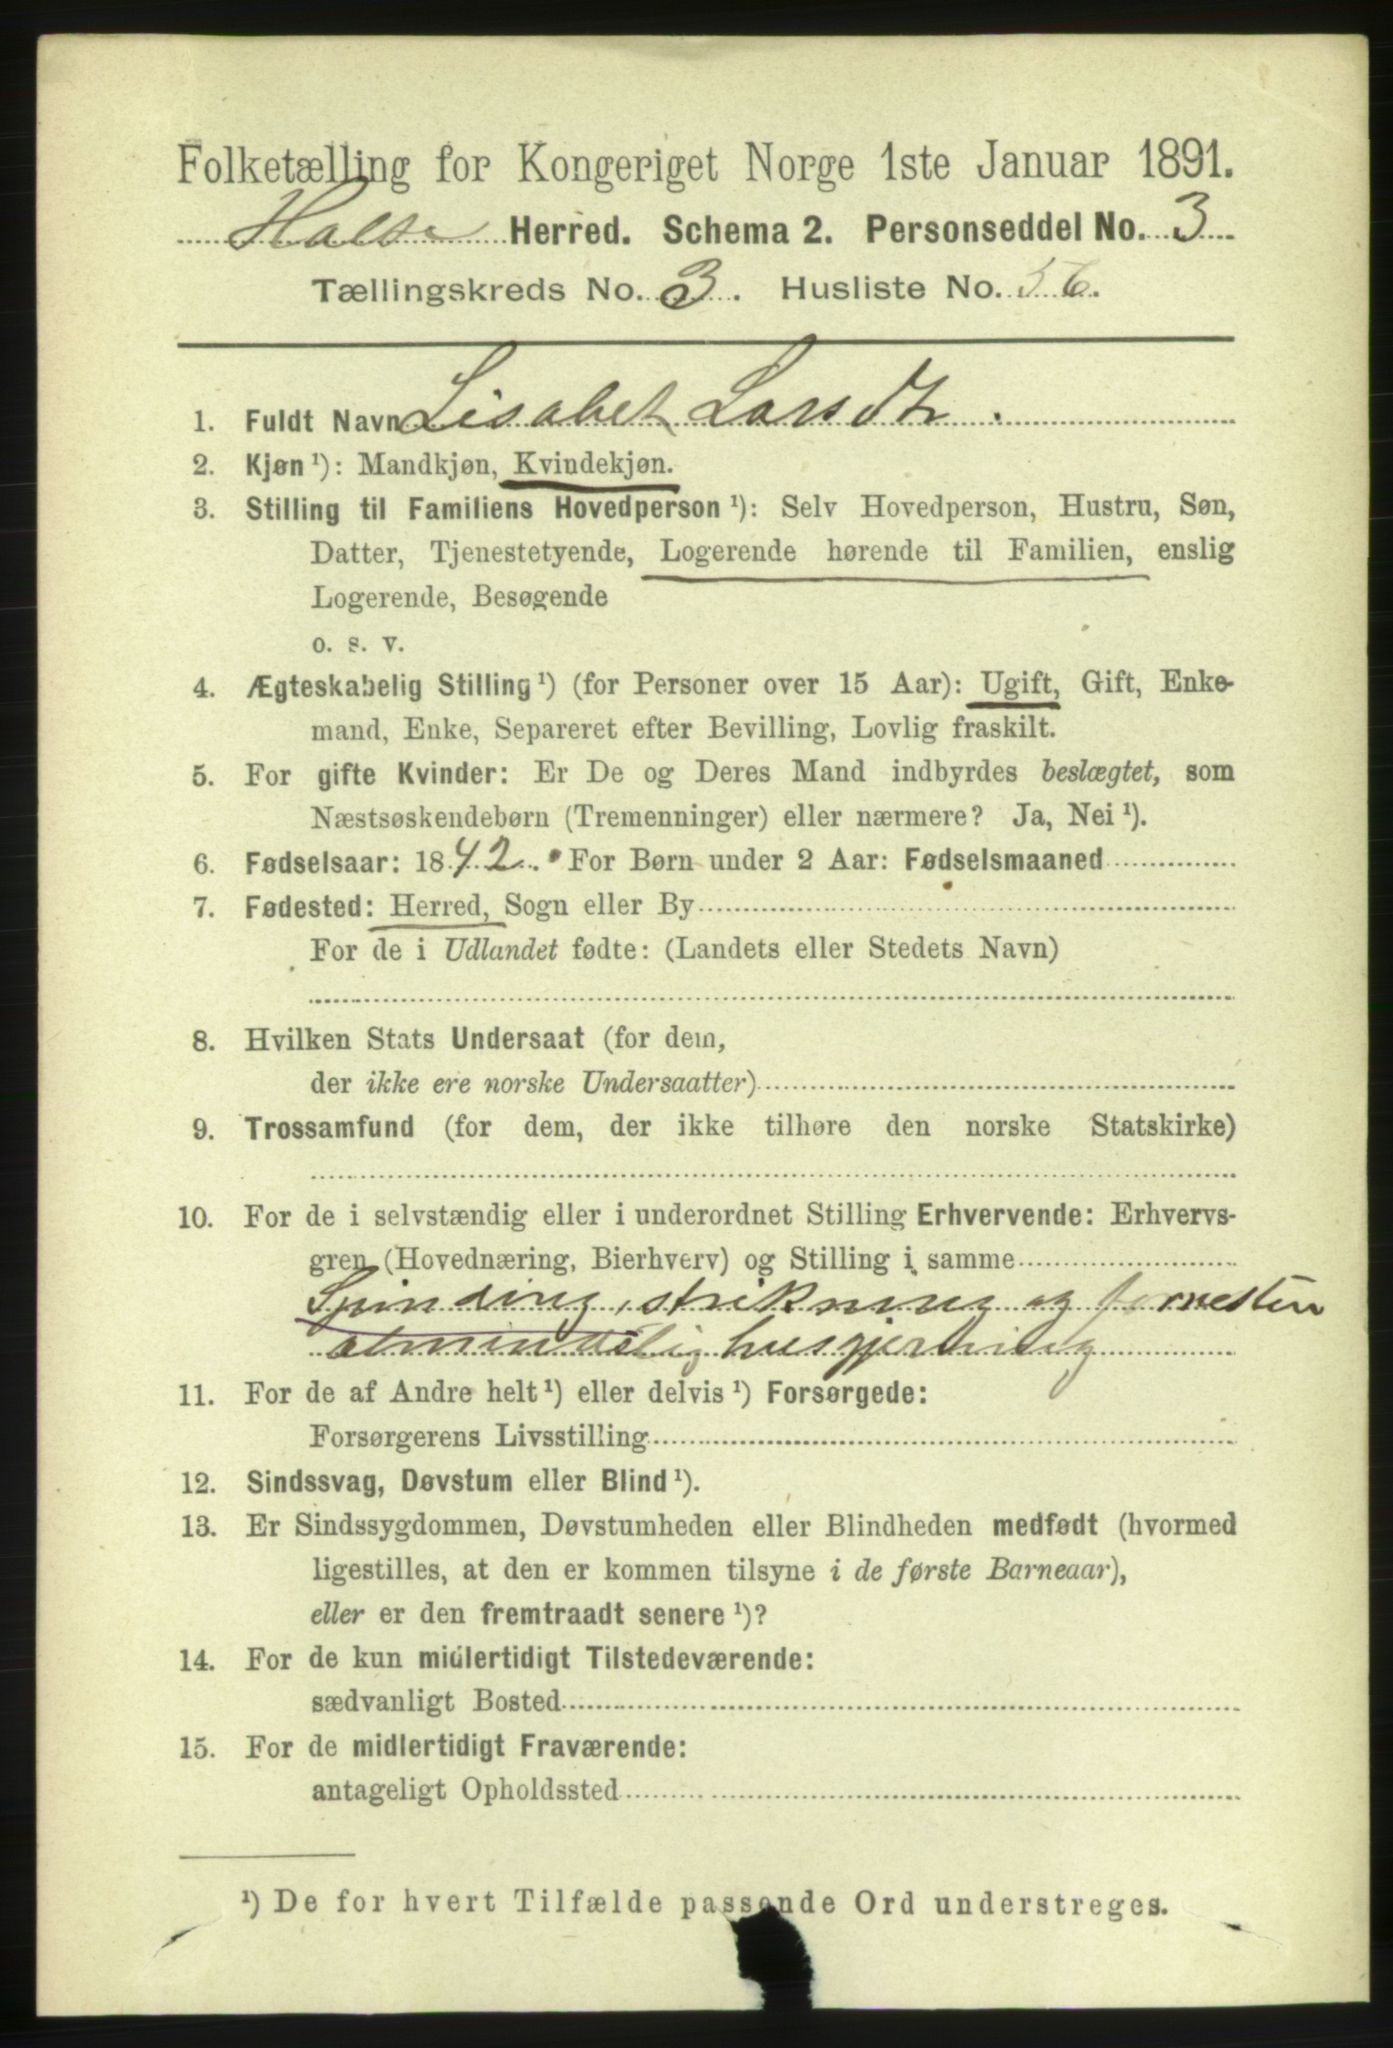 Folketælling for Kongeriget Norge 1ste Januar 1891.
Halse Herred. Schema 2. Personseddel No. 3
Tællingskreds No. 3. Husliste No. 56.
1. Fuldt Navn Lisabet Larsdtr.
2. Kjøn ¹): Mandkjøn, Kvindekjøn.
3. Stilling til Familiens Hovedperson ¹): Selv Hovedperson, Hustru, Søn,
Datter, Tjenestetyende, Logerende hørende til Familien, enslig
Logerende, Besøgende
o. s. v.
4. Ægteskabelig Stilling ¹) (for Personer over 15 Aar): Ugift, Gift, Enke-
mand, Enke, Separeret efter Bevilling, Lovlig fraskilt.
5. For gifte Kvinder: Er De og Deres Mand indbyrdes beslægtet, som
Næstsøskendebørn (Tremenninger) eller nærmere? Ja, Nei ¹).
6. Fødselsaar: 1842. For Børn under 2 Aar: Fødselsmaaned
7. Fødested: Herred, Sogn eller By
For de i Udlandet fødte: (Landets eller Stedets Navn)
8. Hvilken Stats Undersaat (for dem,
der ikke ere norske Undersaatter)
9. Trossamfund (for dem, der ikke tilhøre den norske Statskirke)
10. For de i selvstændig eller i underordnet Stilling Erhvervende: Erhvervs-
gren (Hovednæring, Bierhverv) og Stilling i samme
Spinding, strikning og forresten
almindelig husgjerning
11. For de af Andre helt ¹) eller delvis ¹) Forsørgede:
Forsørgerens Livsstilling
12. Sindssvag, Døvstum eller Blind ¹).
13. Er Sindssygdommen, Døvstumheden eller Blindheden medfødt (hvormed
ligestilles, at den er kommen tilsyne i de første Barneaar),
eller er den fremtraadt senere ¹)?
14. For de kun midlertidigt Tilstedeværende:
sædvanligt Bosted
15. For de midlertidigt Fraværende:
antageligt Opholdssted
¹) De for hvert Tilfælde passende Ord understreges.